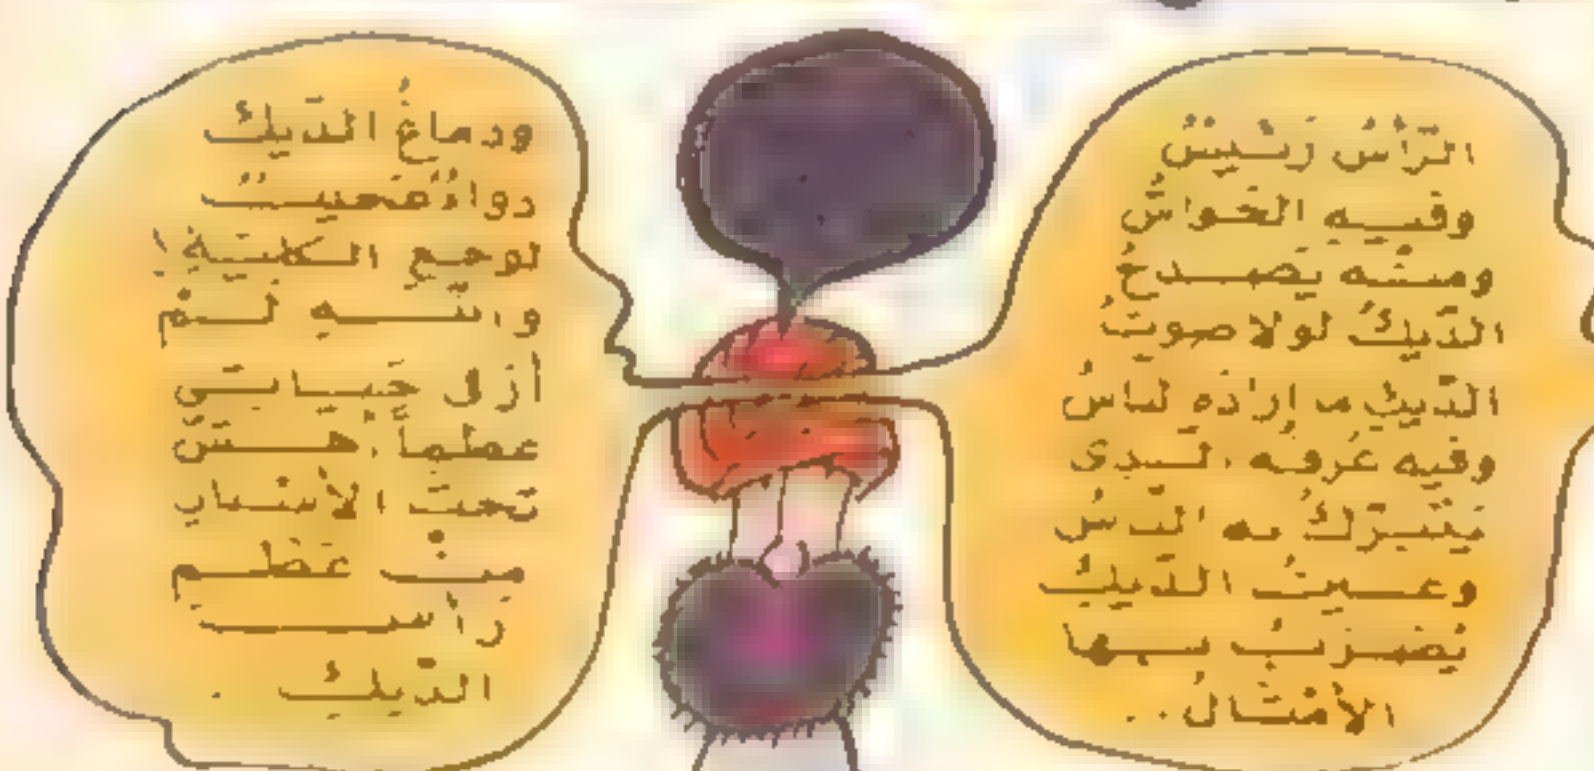 الرَّأْسُ رَئِيسٌ
وفيه الحَواسُّ
ومنه يَصْدحُ
الدّيكُ لولا صوتُ
الدّيكِ ما إرادَه لناسُ
وفيه عُرفُه الذى
يُتبرّكُ به الناسُ
وعينُ الدّيكِ
يُضربُ بها
الأمْثالُ..
ودماغُ الدّيكِ
دواءٌ عجيبٌ
لوجعِ الكليَةِ!
والله لمْ
أرَ فى حَياتى
عظماً أهشَّ
تحتَ الأسنانِ
مِنْ عَظمِ
رأسِ
الدّيكِ.